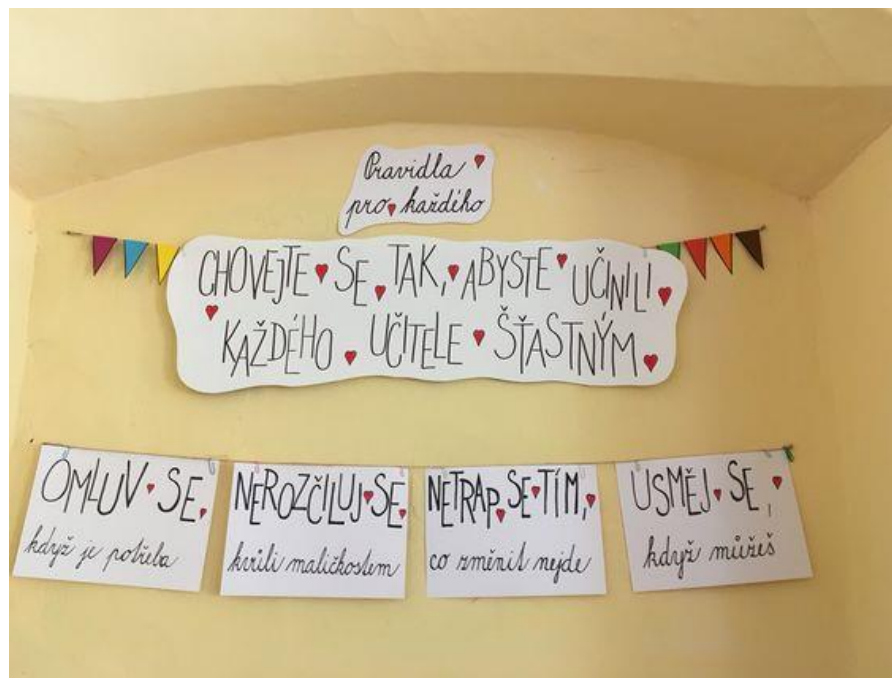 Pravidla
pro každého
CHOVEJTE SE TAK, ABYSTE UČINILI
KAŽDÉHO UČITELE ŠŤASTNÝM
OMLUV SE,
když je potřeba
NEROZČILUJ SE
kvůli maličkostem
NETRAP SE TÍM,
co změnit nejde
USMĚJ SE,
když můžeš